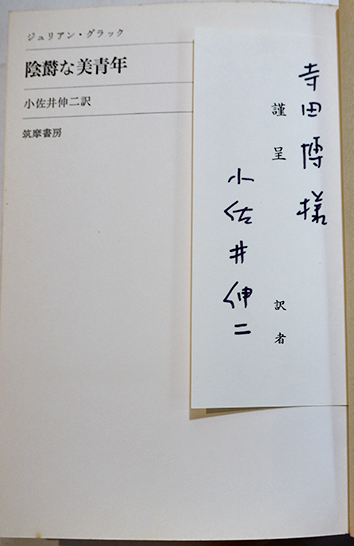 ジュリアン・グラック
陰欝な美青年
小佐井伸二訳
筑摩書房
寺田博様
謹呈 訳者
小佐井伸二